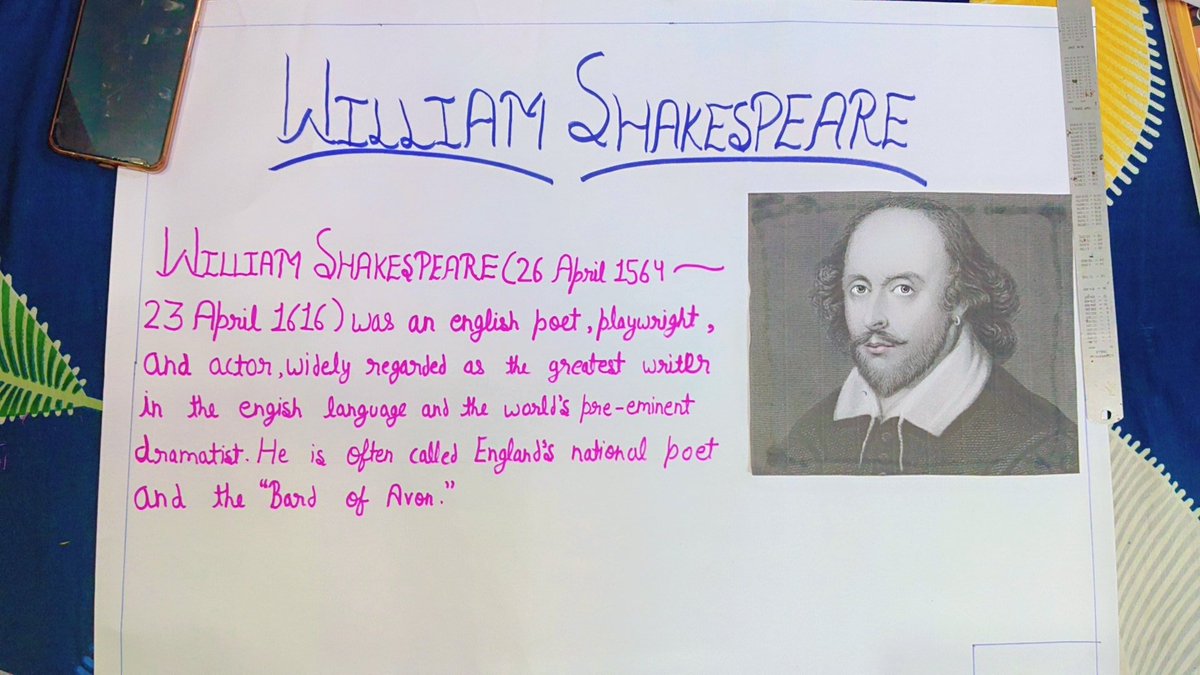 WILLIAM SHAKESPEARE
WILLIAM SHAKESPEARE (26 April 1564 ~
23 April 1616) was an english poet, playwright,
and actor, widely regarded as the greatest writer
in the engish language and the world's pre-eminent
dramatist. He is often called England's national poet
and the "Bard of Avon."